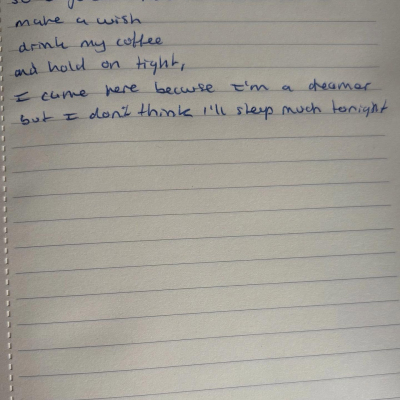 make a wish
drink my coffee
and hold on tight,
I came here because I'm a dreamer
but I don't think I'll sleep much tonight